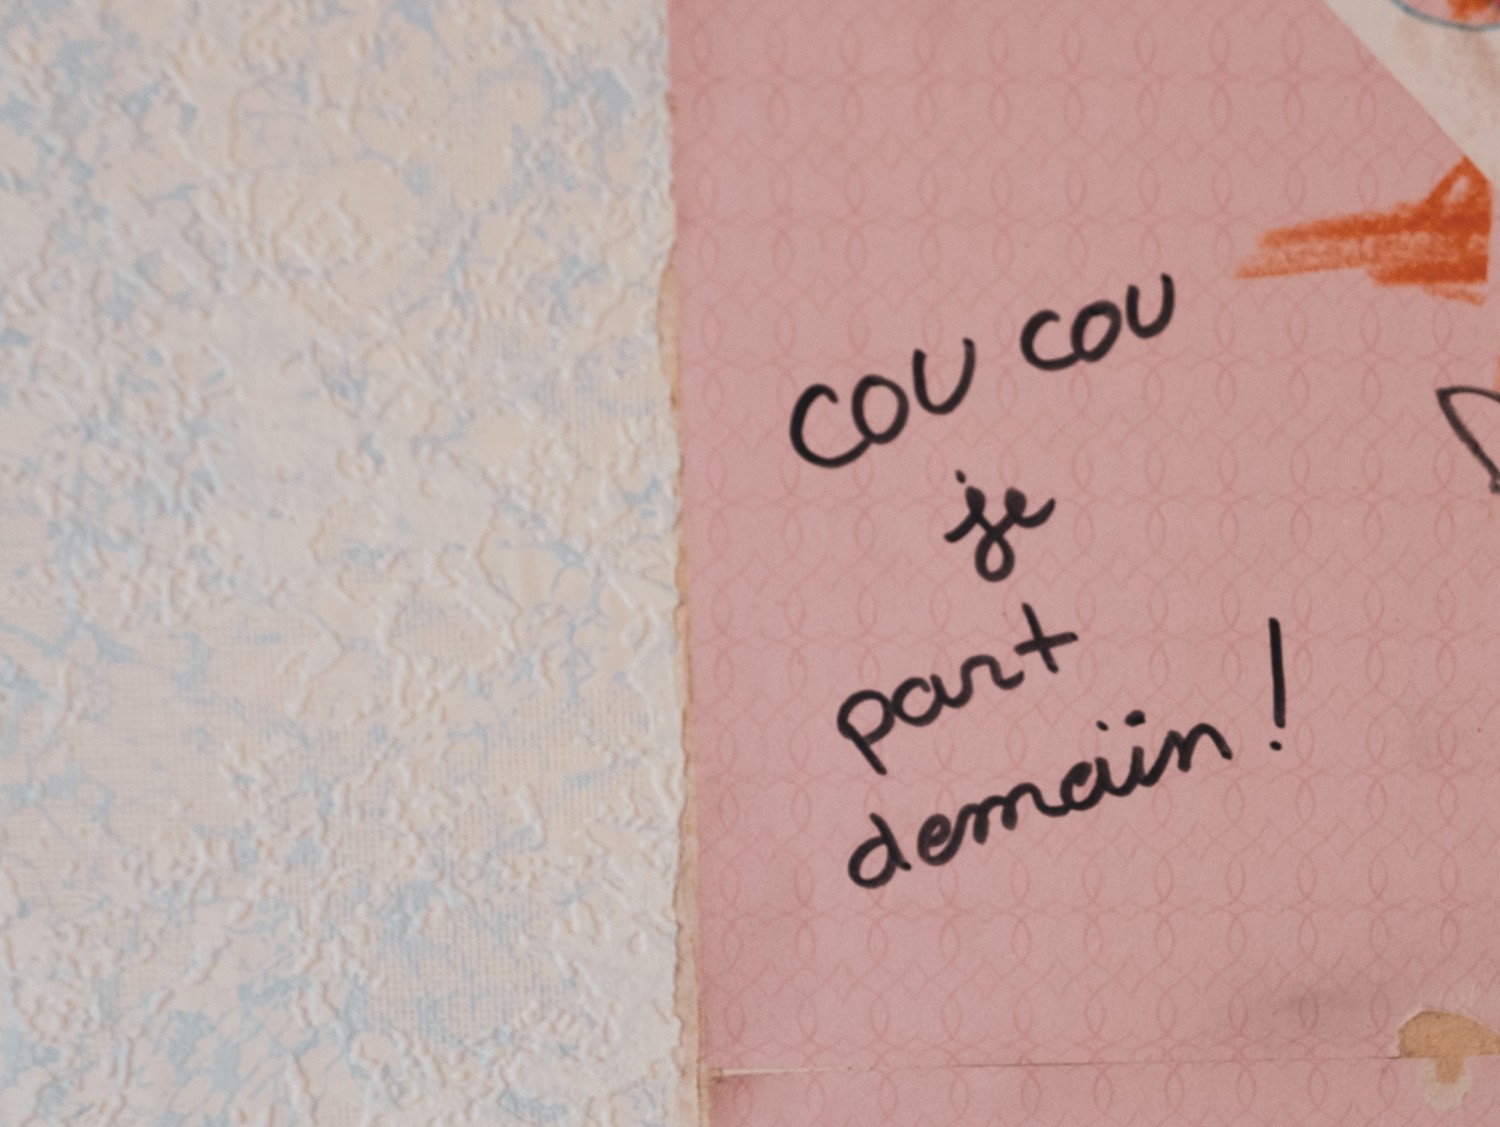 cou cou
je
part
demaiin !